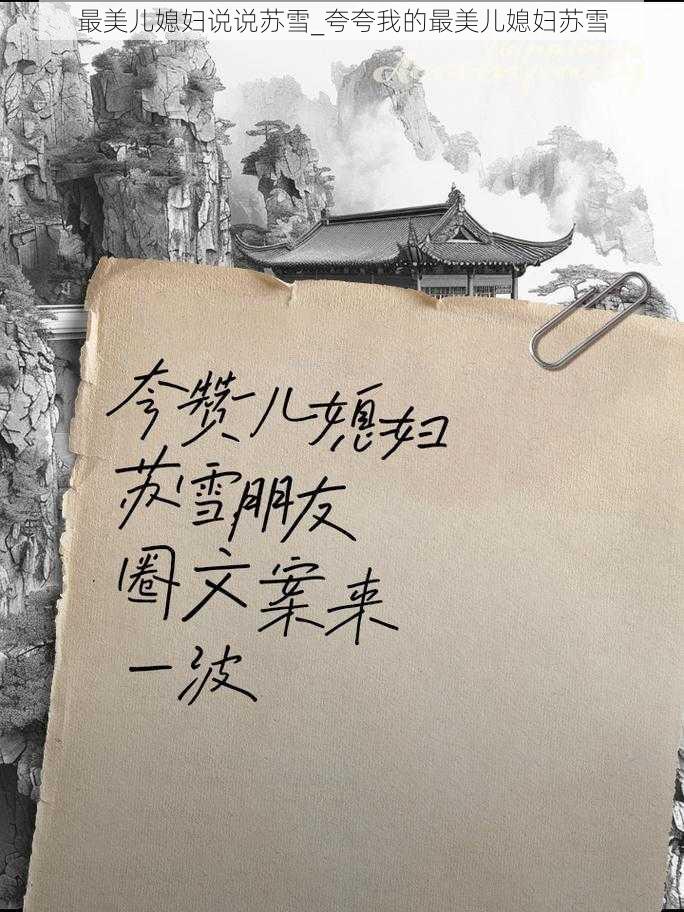 最美儿媳妇说说苏雪_夸夸我的最美儿媳妇苏雪
夸赞儿媳妇
苏雪朋友
圈文案来
一波